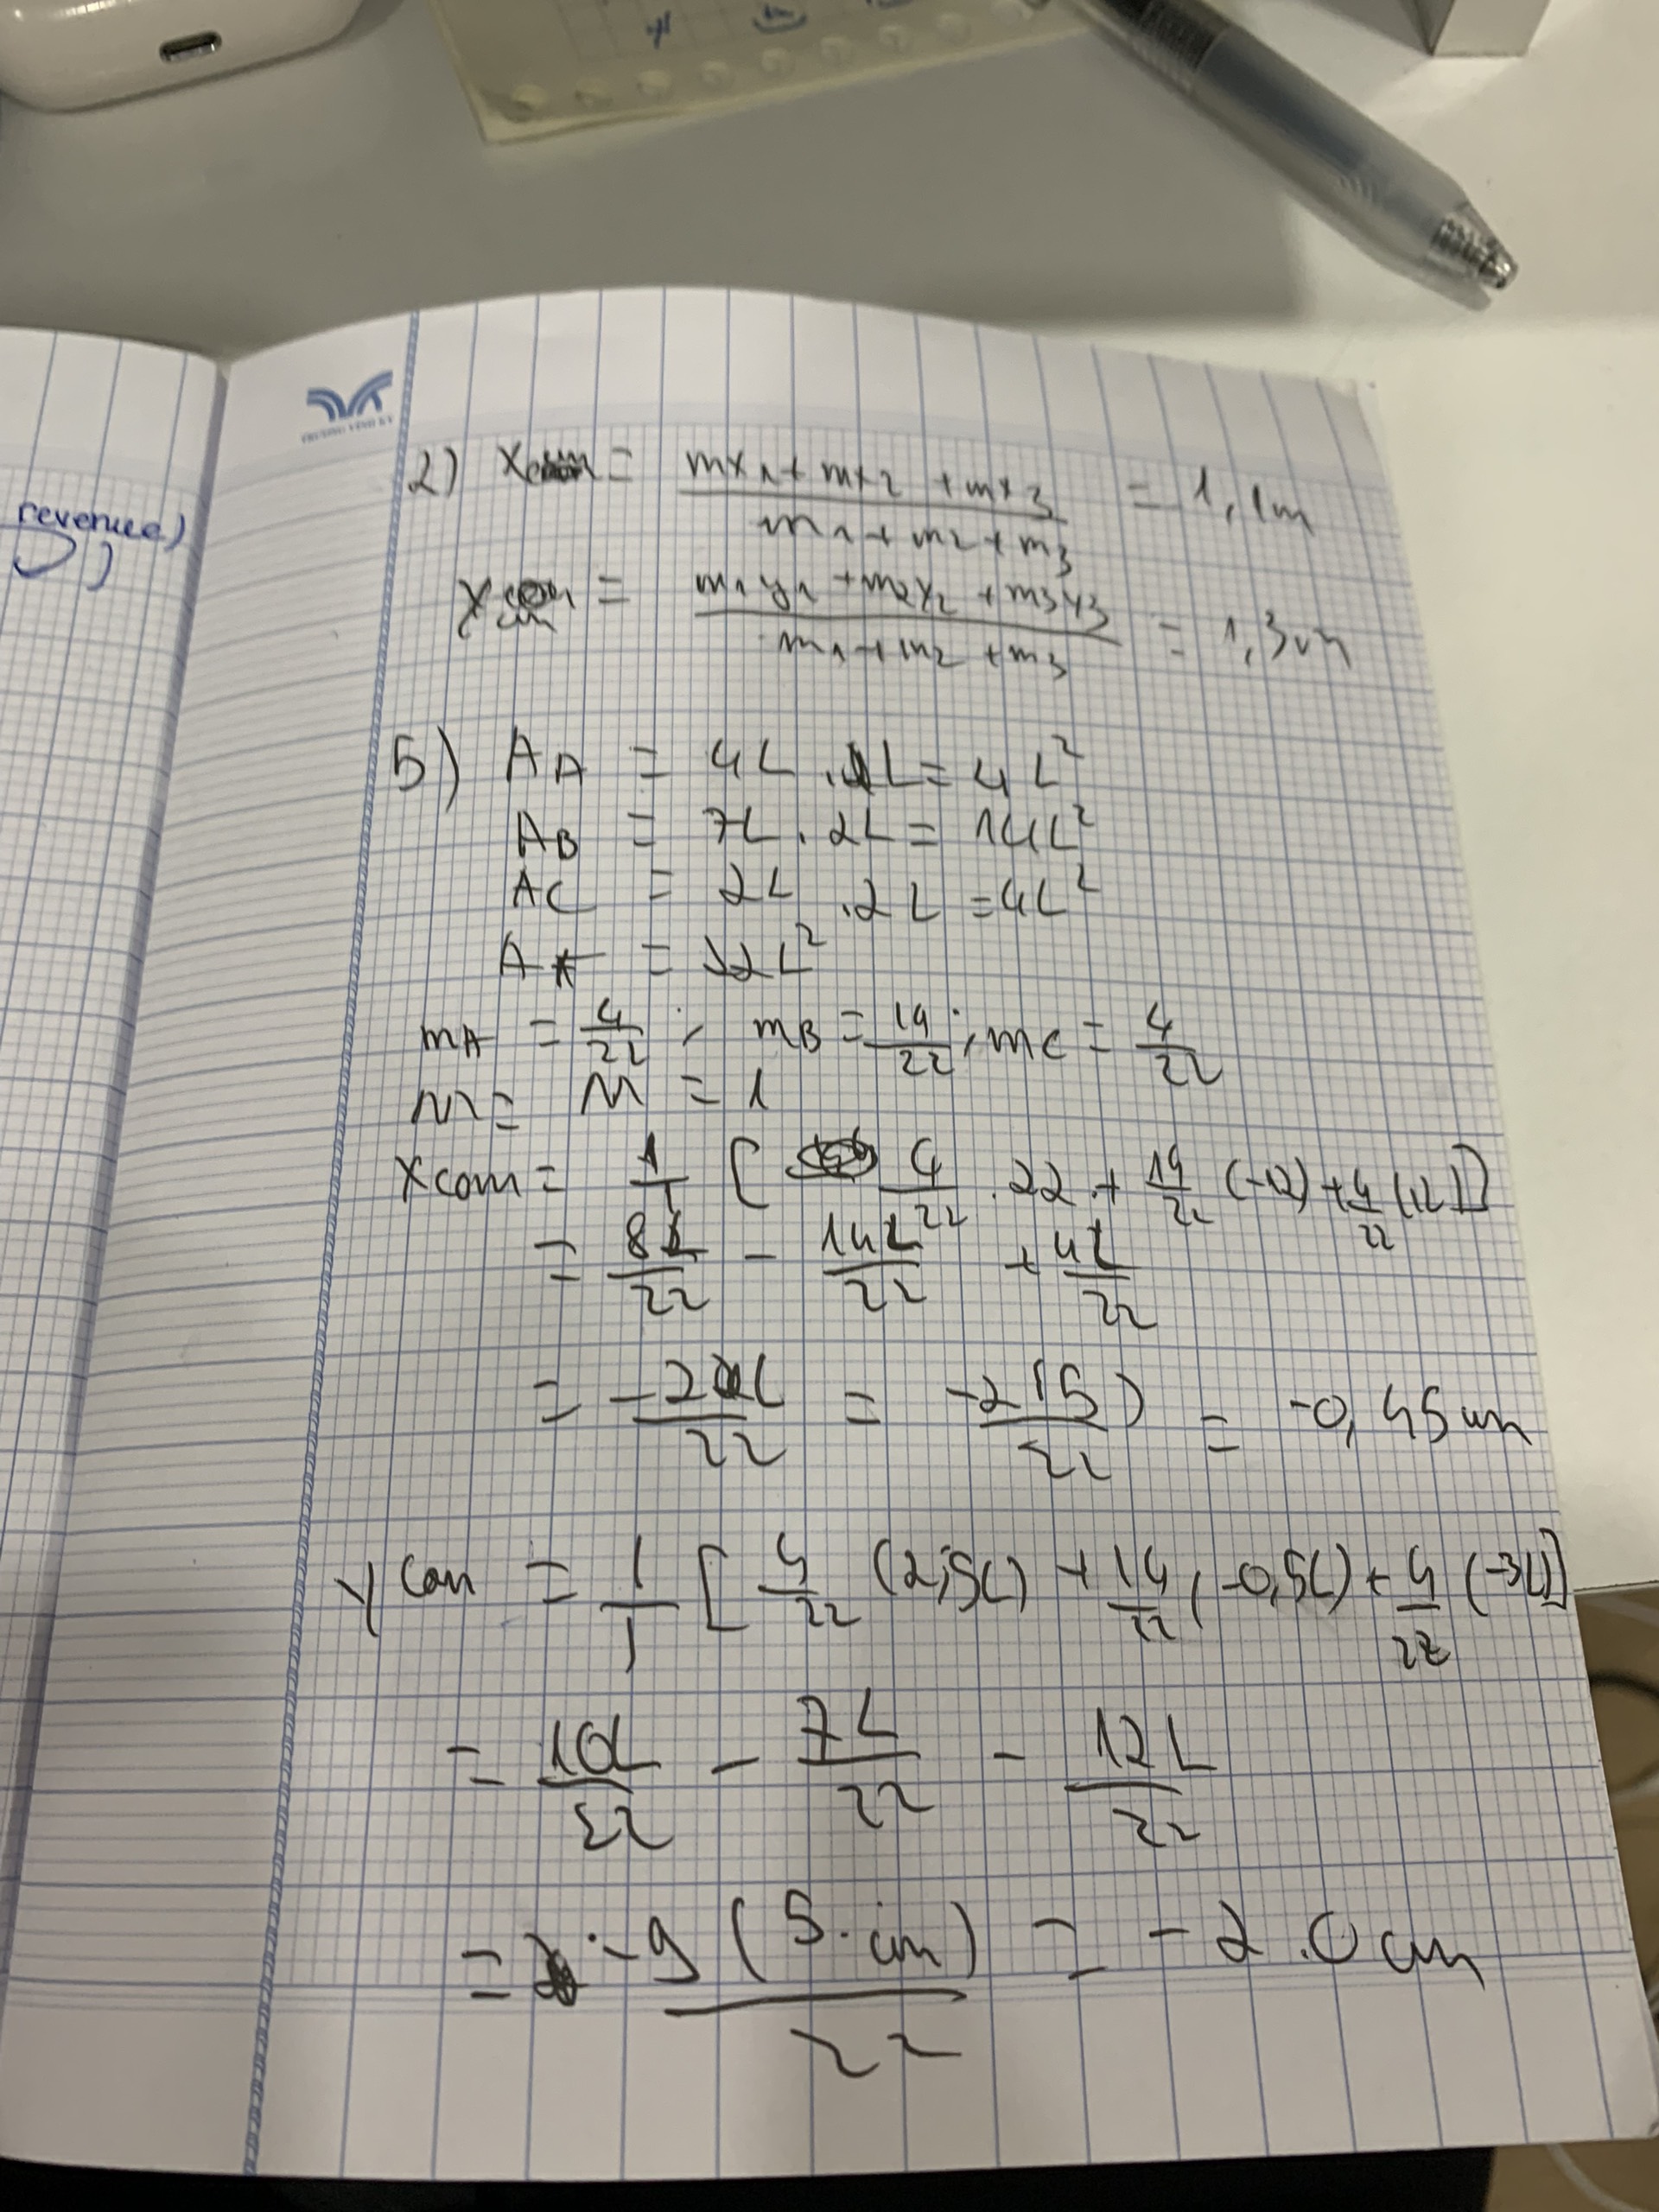 revenue)
TRƯƠNG VĨNH KÝ
2) Xcm = mx1 + mx2 + mx3 / m1 + m2 + m3 = 1,1m
Ycm = m1y1 + m2y2 + m3y3 / m1 + m2 + m3 = 1,3m
5) AA = 4L . 1L = 4L²
AB = 7L . 2L = 14L²
AC = 2L . 2L = 4L²
At = 22L²
mA = 4/22 ; mB = 14/22 ; mC = 4/22
m = M = 1
Xcom = 1/1 [ 4/22 . 2L + 14/22 (-1L) + 4/22 (1L) ]
= 8L/22 - 14L/22 + 4L/22
= -2L/22 = -2(5)/22 = -0,45cm
ycom = 1/1 [ 4/22 (2,5L) + 14/22 (-0,5L) + 4/22 (-3L) ]
= 10L/22 - 7L/22 - 12L/22
= -9(5.cm)/22 = -2.0cm